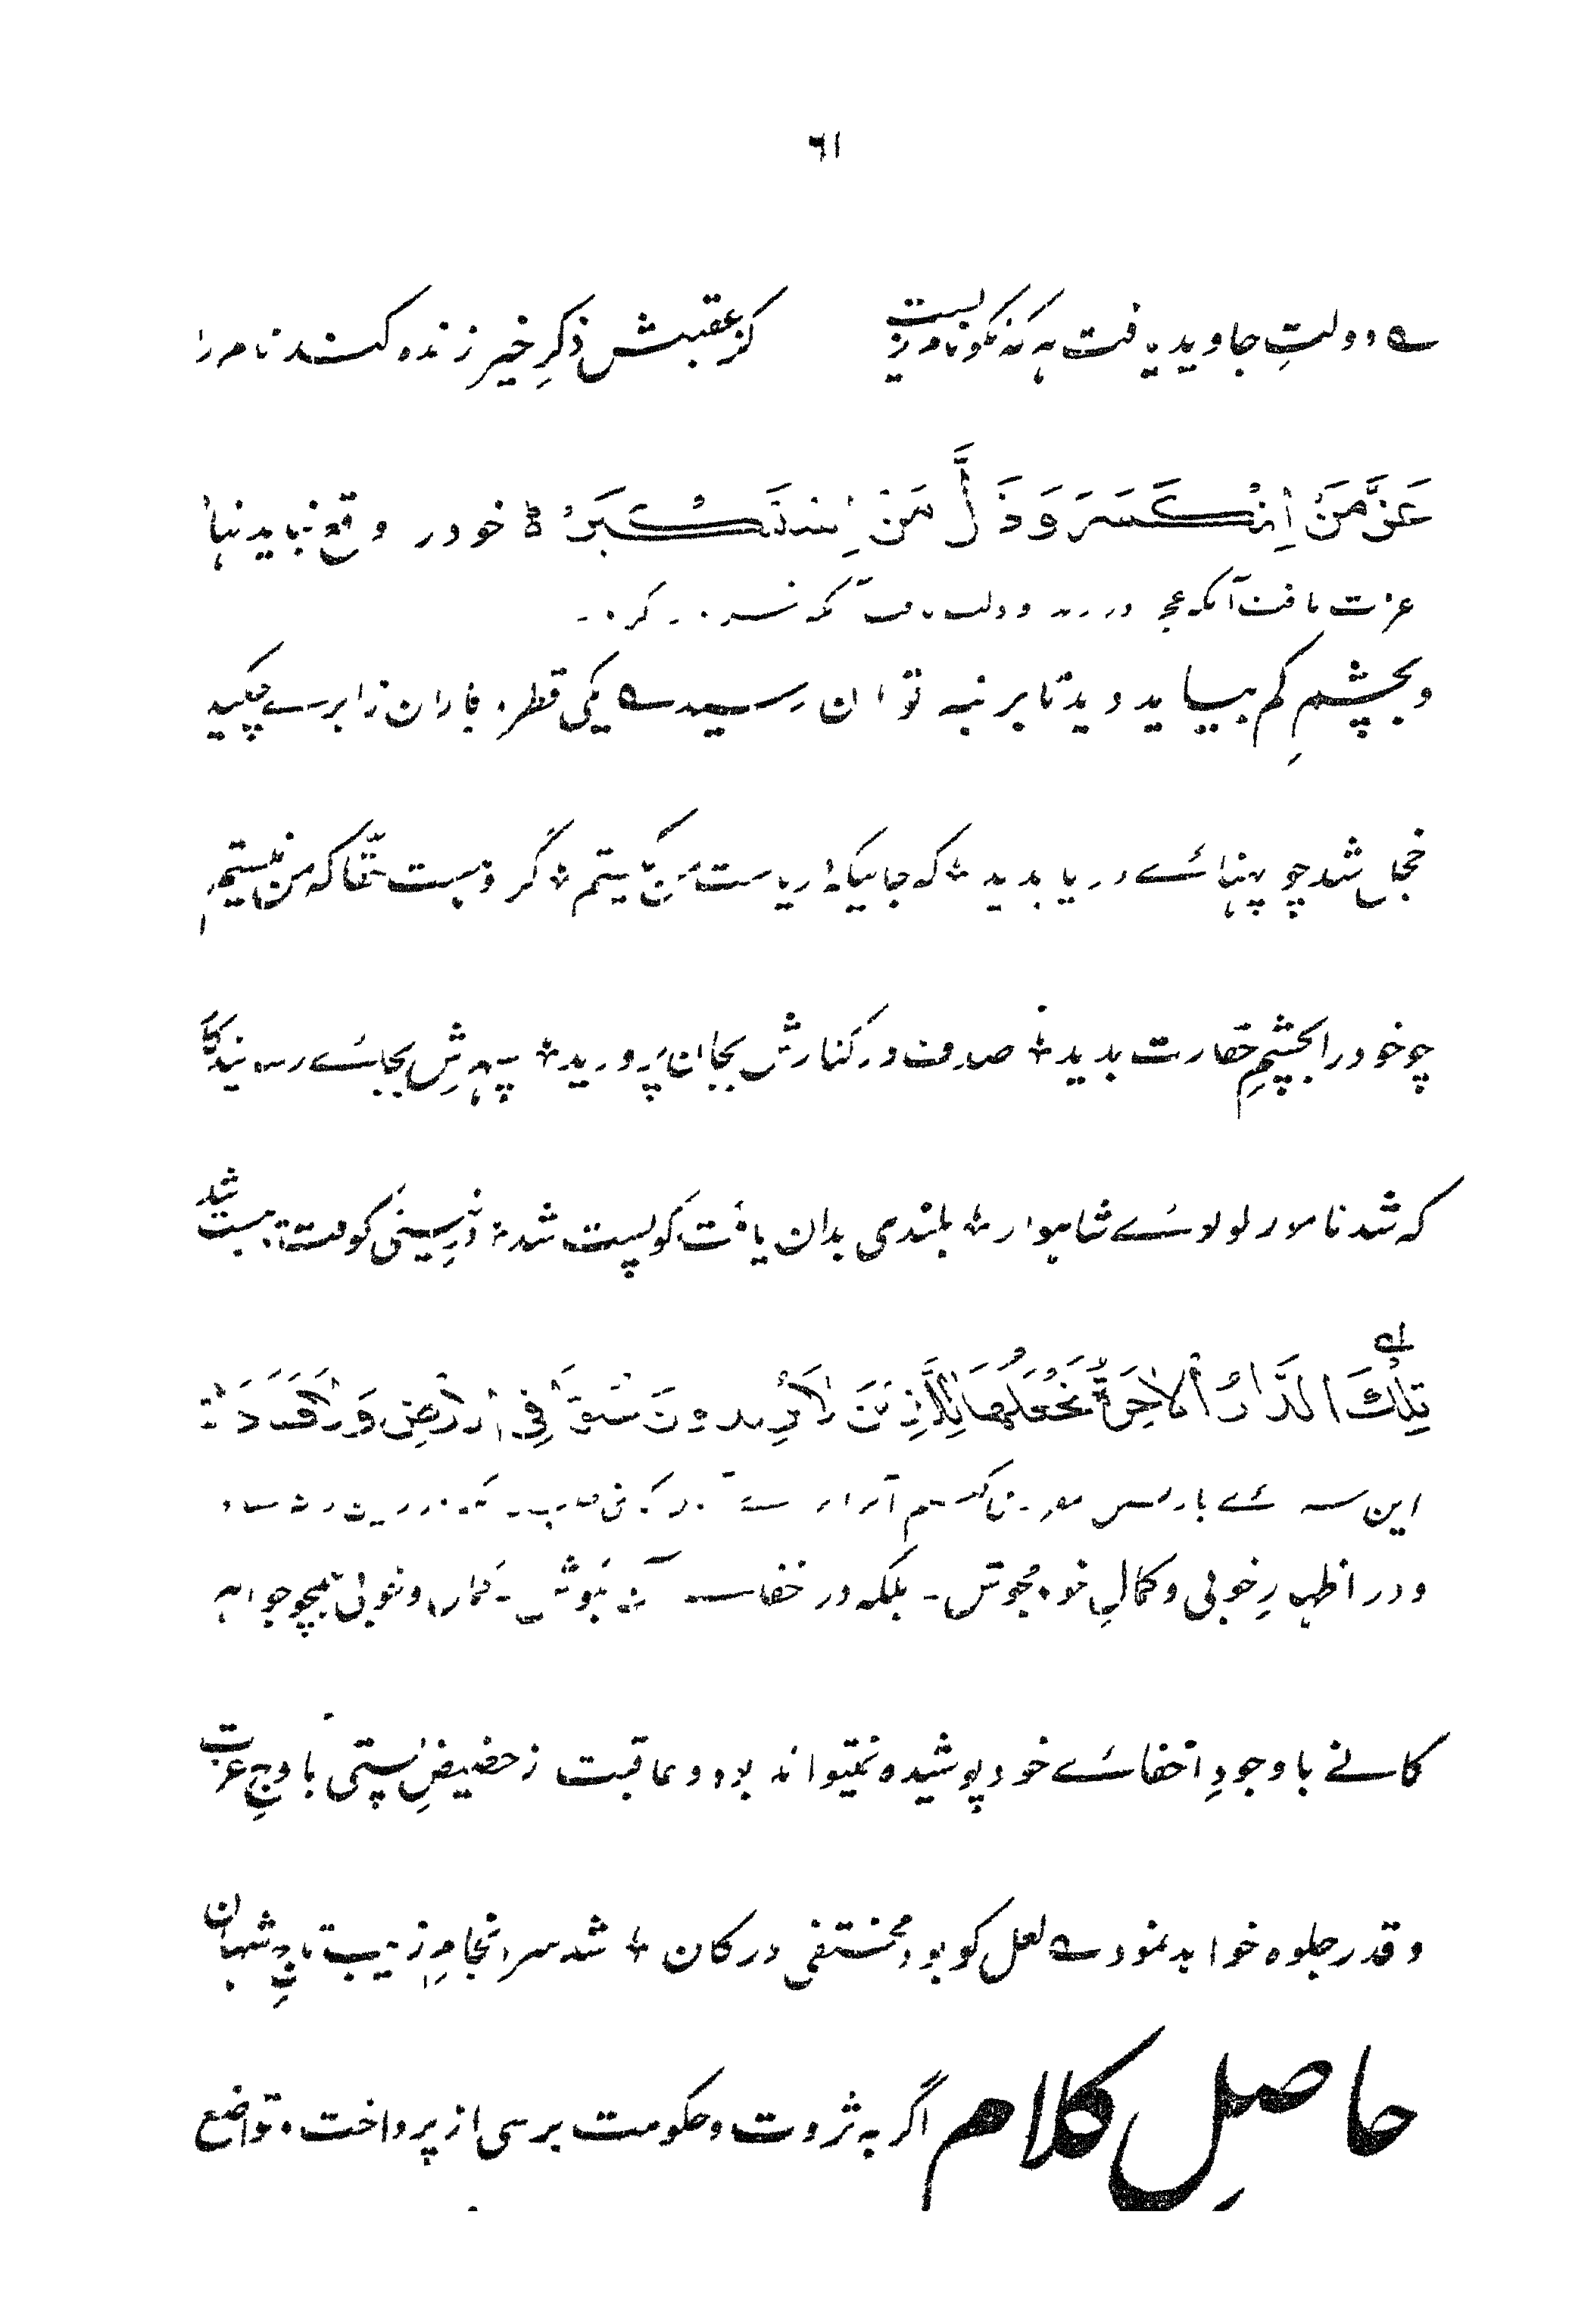 ٦١
ے دولتِ جاوید یافت ہر کہ نکونام زیست کز عقبش ذکرِ خیر زنده کند نام را
عَزَّ مَنْ اِنْكَسَرَ وَذَلَّ مَنْ اِسْتَكْبَرَ خود را وقع نباید نهاد
عزت یافت آنکه عجز
و بچشمِ کم بباید دید تا برتبہ توان رسید ے یکی قطره باران ز ابرے چکید
خجل شد چو پہنائے دریا بدید ؞ کہ جائیکہ دریاست من کیستم ؞ گر او ہست حقّا کہ من نیستم
چو خود را بچشمِ حقارت بدید ؞ صدف در کنارش بجان پرورید ؞ سپہرش بجائے رسانید کار
کہ شد نامور لولوئے شاہوار ؞ بلندی بدان یافت کو پست شد ؞ درِ نیستی کوفت تا ہست شد
تِلْكَ الدَّارُ الْاٰخِرَةُ نَجْعَلُهَا لِلَّذِيْنَ لَا يُرِيدُونَ عُلُوًّا فِي الْاَرْضِ وَلَا فَسَادًا
این
و در اظہارِ خوبی و کمالِ خود مکوش ۔ بلکہ در خفاے آن بکوش ۔ کمال و خوبی ہمچو جواہر
کانے با وجودِ اخفائے خود پوشیده نمیتواند بود و عاقبت ز حضیضِ پستی باوجِ عزت
و قدر جلوه خواہد نمود ے لعل کو بود مختفی در کان ؞ شد سرانجام زیبِ تاجِ شہان
حاصلِ کلام اگر بہ ثروت و حکومت برسی از پرداختِ تواضع